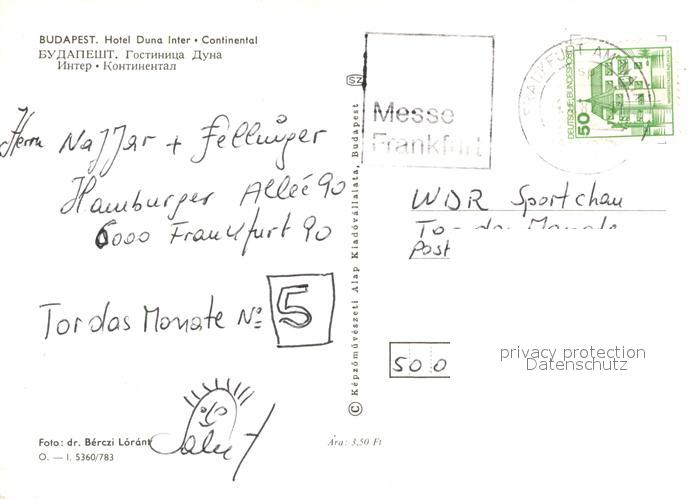 BUDAPEST. Hotel Duna Inter • Continental
БУДАПЕШТ. Гостиница Дуна
Интер • Континентал
Herrn Najjar + Fellinger
Hamburger Alleé 90
6000 Frankfurt 90
Tor das Monate No 5
Salut
Foto: dr. Bérczi Lóránt
O. — I. 5360/783
Ára: 3,50 Ft
© Képzőművészeti Alap Kiadóvállalata, Budapest
SZ
Messe
Frankfurt
FRANKFURT AM
DEUTSCHE BUNDESPOST
50
WDR Sportchau
Tor das Monate
Post
500
privacy protection
Datenschutz